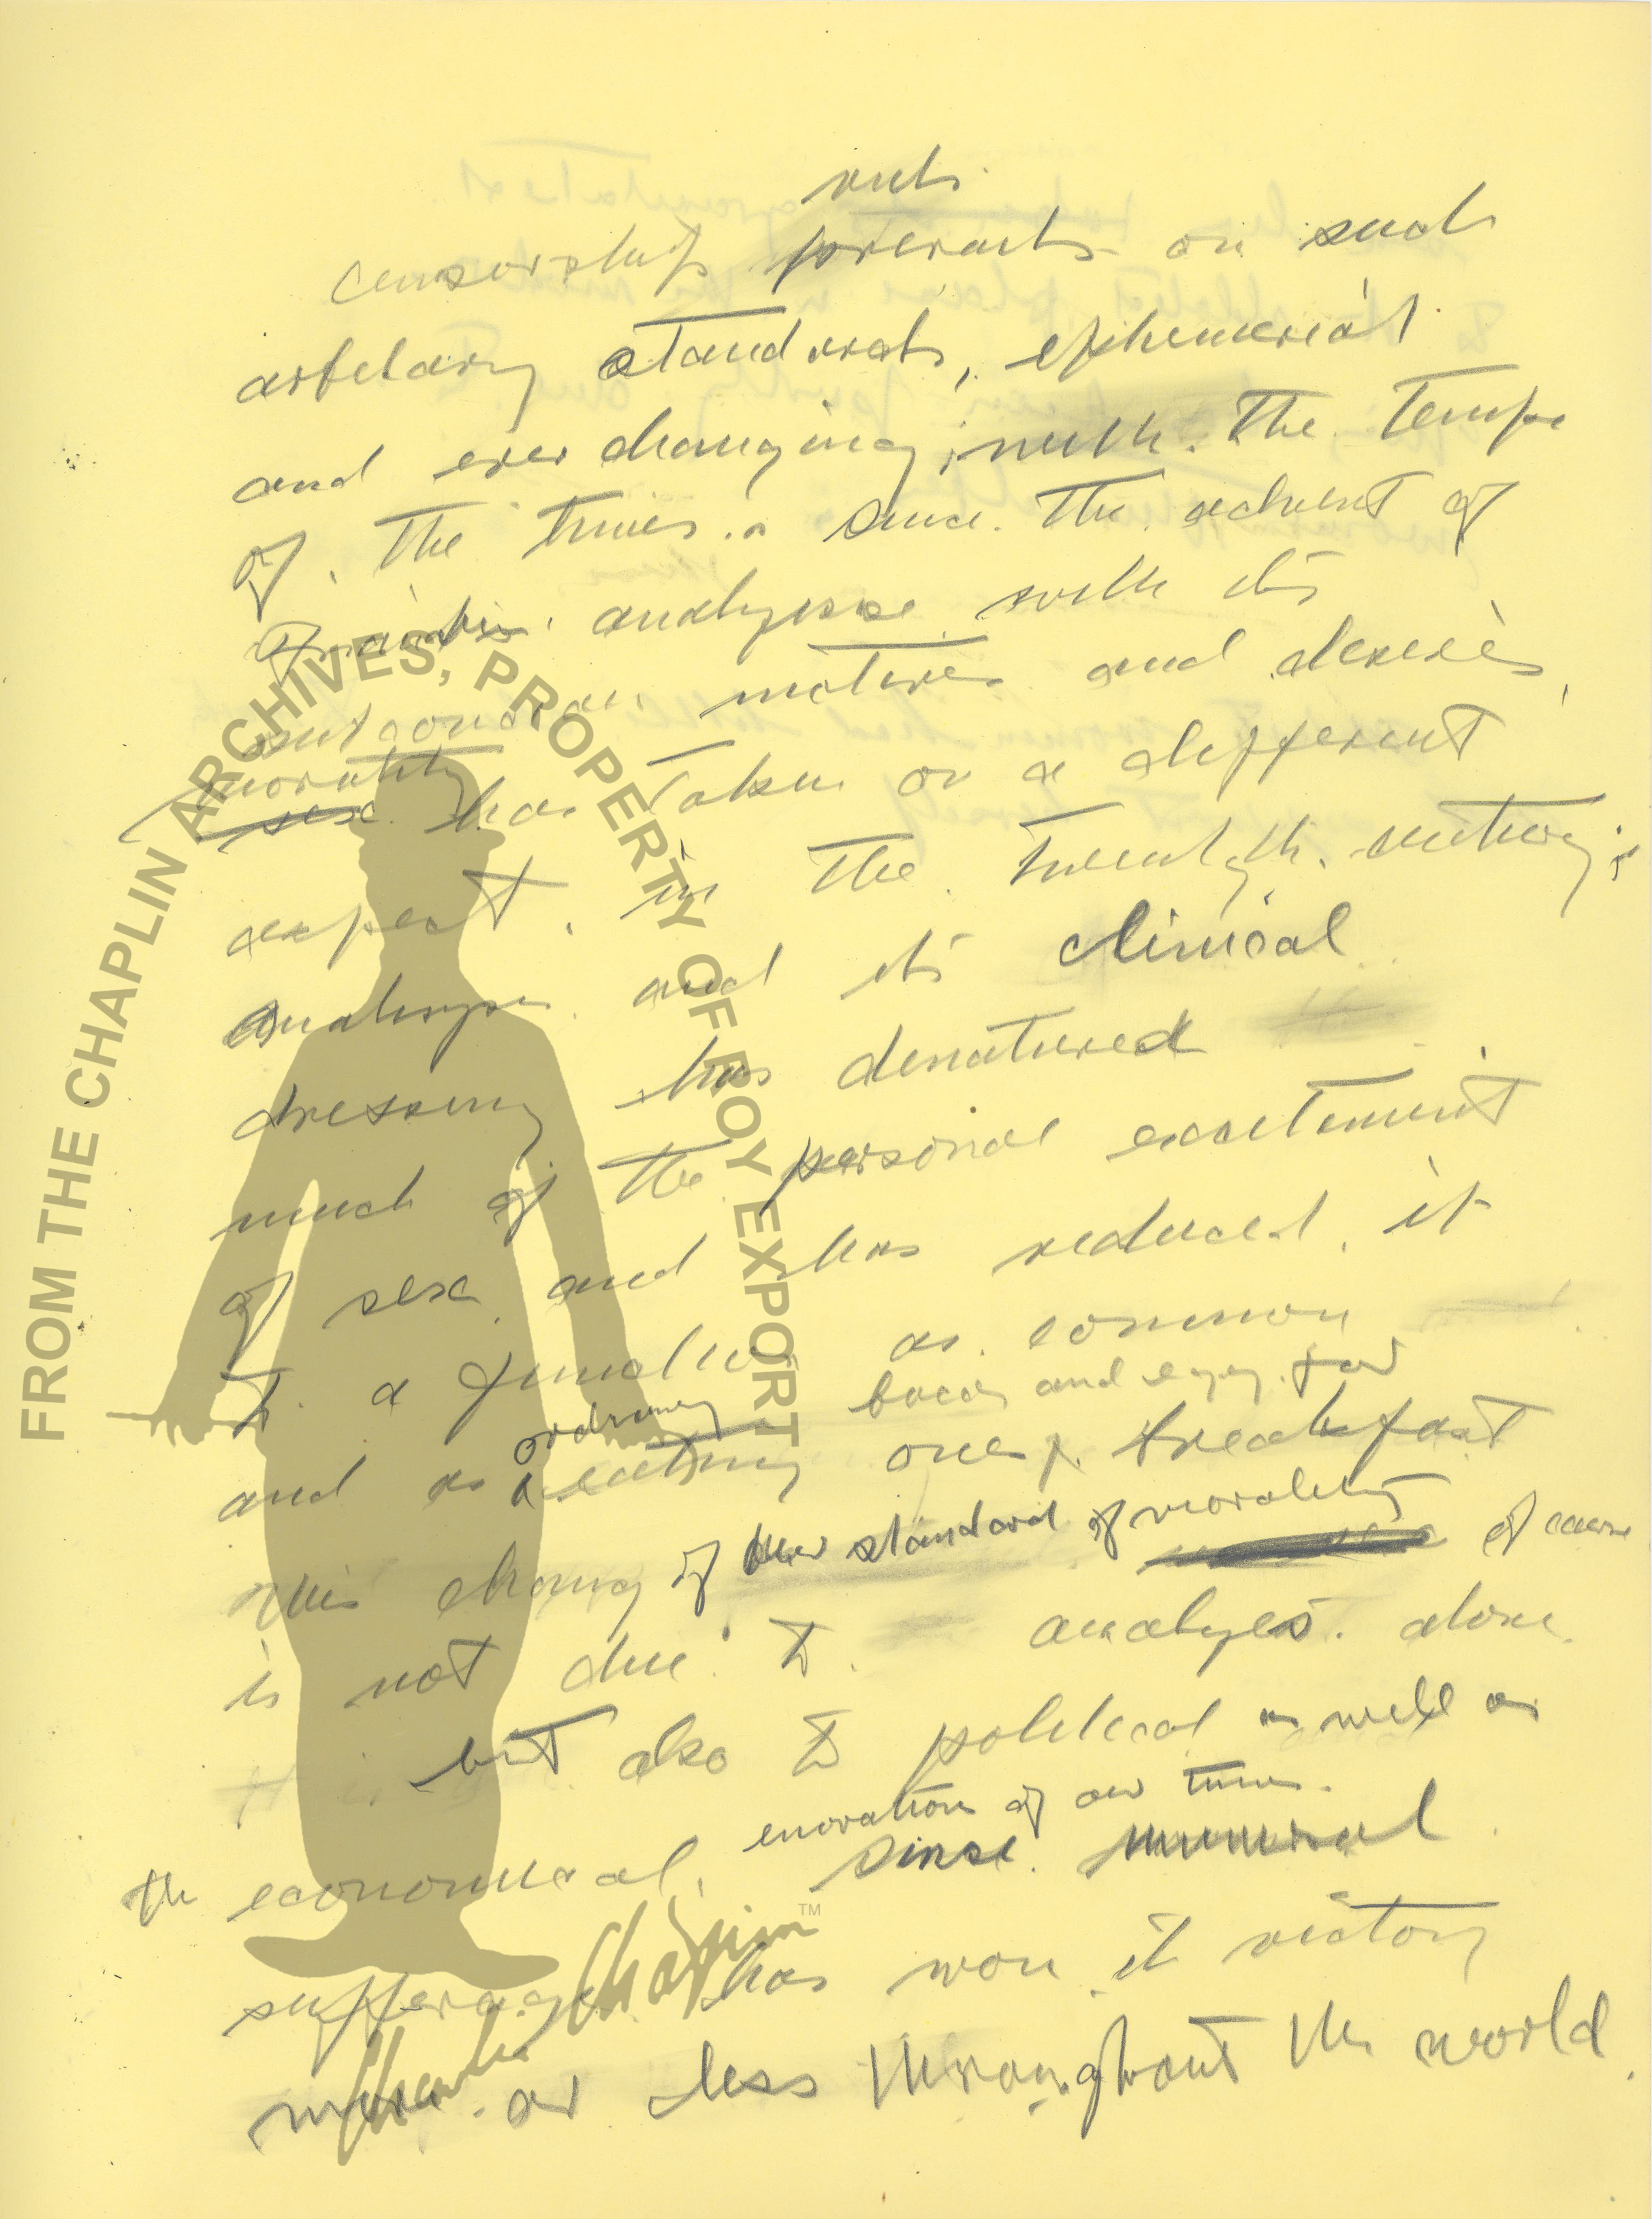 rests
censorship on such
arbetary standards, ephemerial
and ever changing, with the tempo
of the times. Since the advent of
analysise with its
motives and desires,
morality
sex has taken on a different
aspect, in the twentyth century;
analysis and its clinical
dressing has denatured
much of the personal excitement
of sex and has reduced it
to a function as common
ordinary bacon and eggs for
and as eating ones breakfast
This change of the standard of morality of course
is not due to analyes alone.
but also to political as well as
enovation of our times.
the economical, since
sufferage has won it victory
more or less throughout the world.
FROM THE CHAPLIN ARCHIVES, PROPERTY OF ROY EXPORT
Charlie Chaplin™